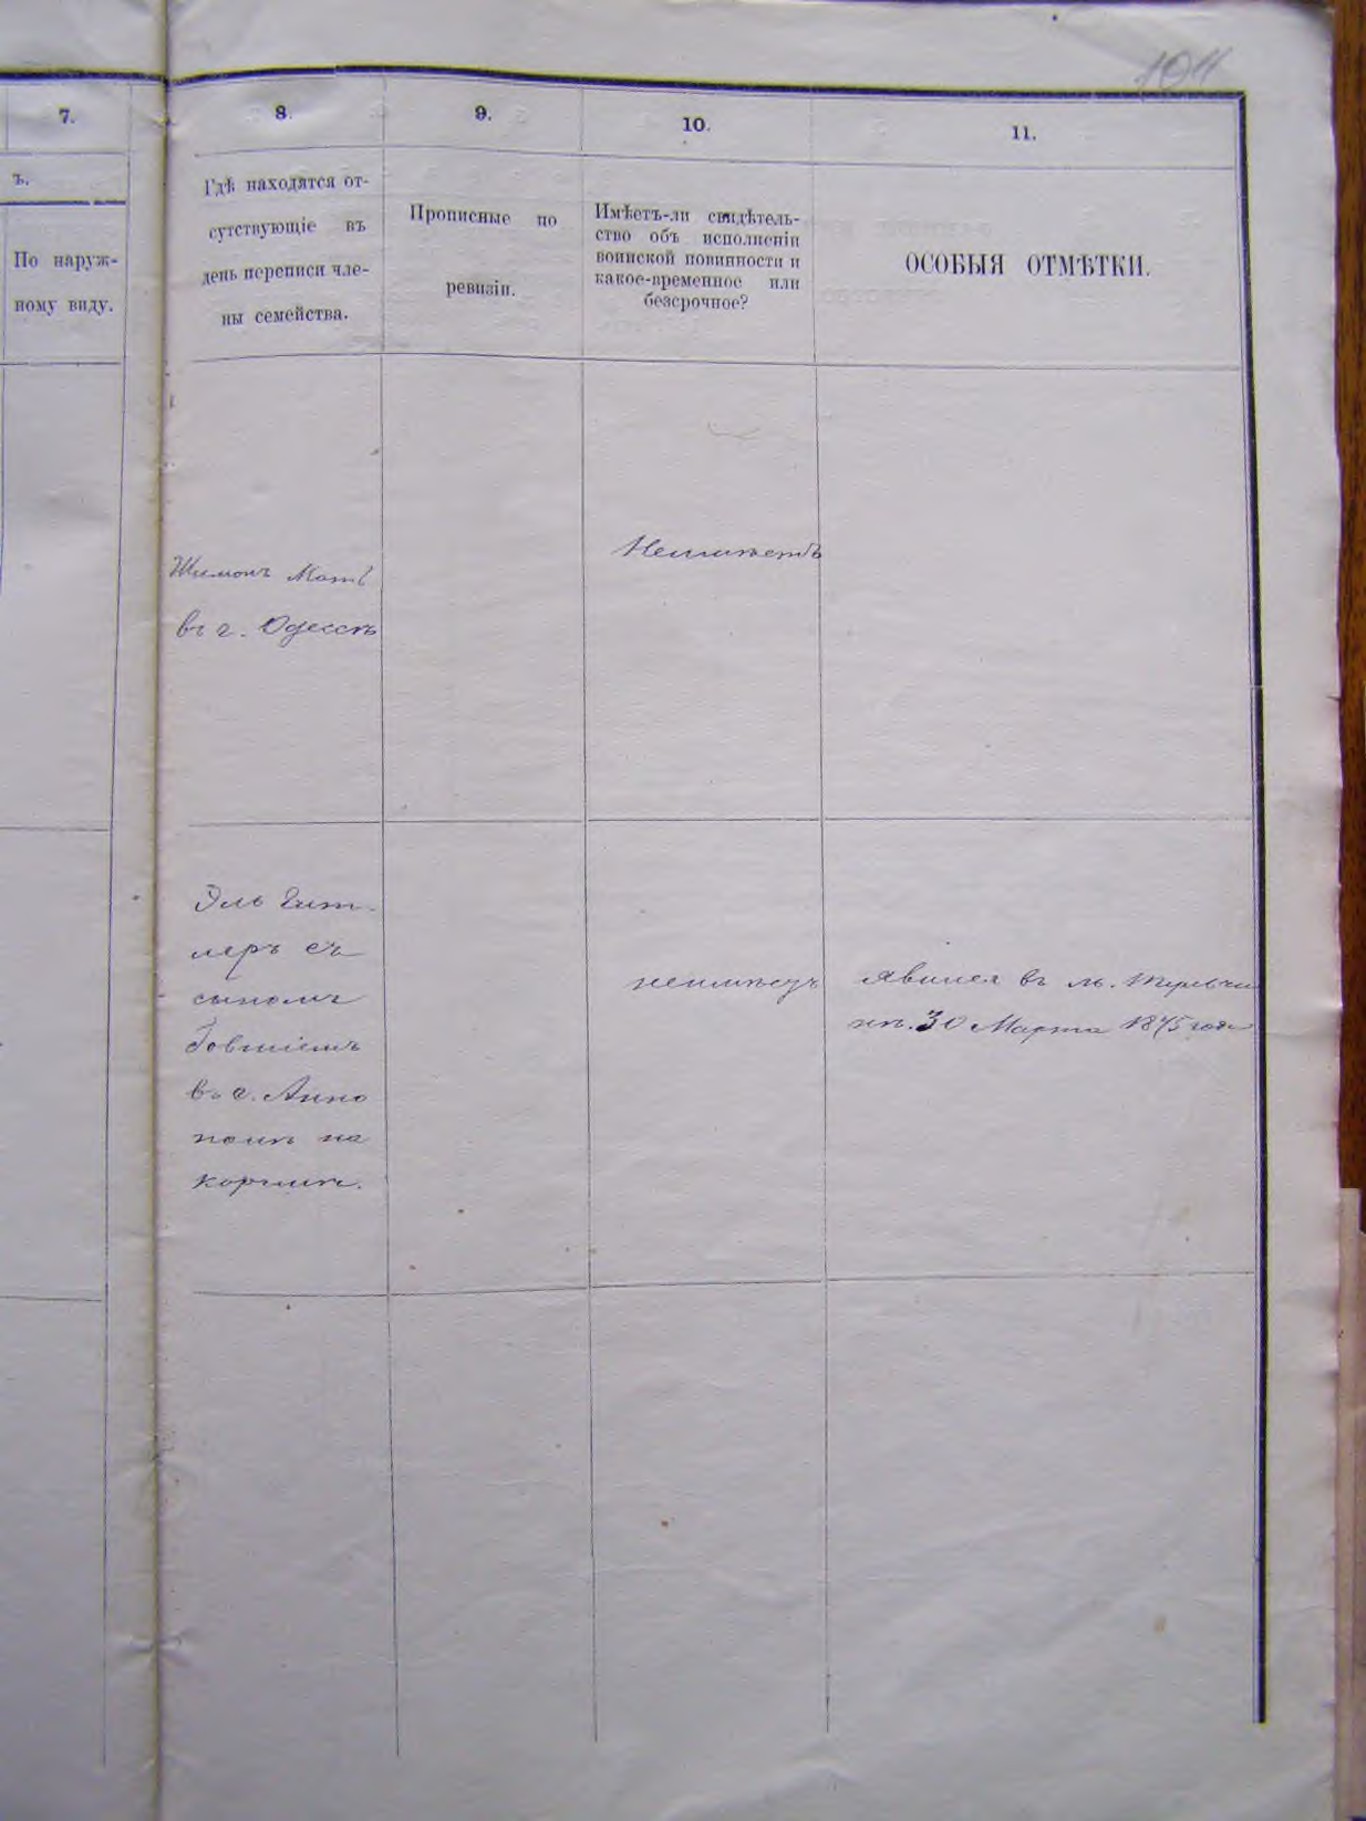 101
7.
8.
9.
10.
11.
ъ.
По наруж-
ному виду.
Гдѣ находятся от-
сутствующіе въ
день переписи чле-
ны семейства.
Прописные по
ревизіи.
Имѣетъ-ли свидѣтель-
ство объ исполненіи
воинской повинности и
какое-временное или
безсрочное?
ОСОБЫЯ ОТМѢТКИ.
Шимонъ
въ г. Одессѣ
Неимѣетъ
Эль Гит-
леръ съ
сыномъ
въ с. Анно
полѣ на
корчмѣ.
неимѣетъ
явился въ м.
30 Марта 1875 года